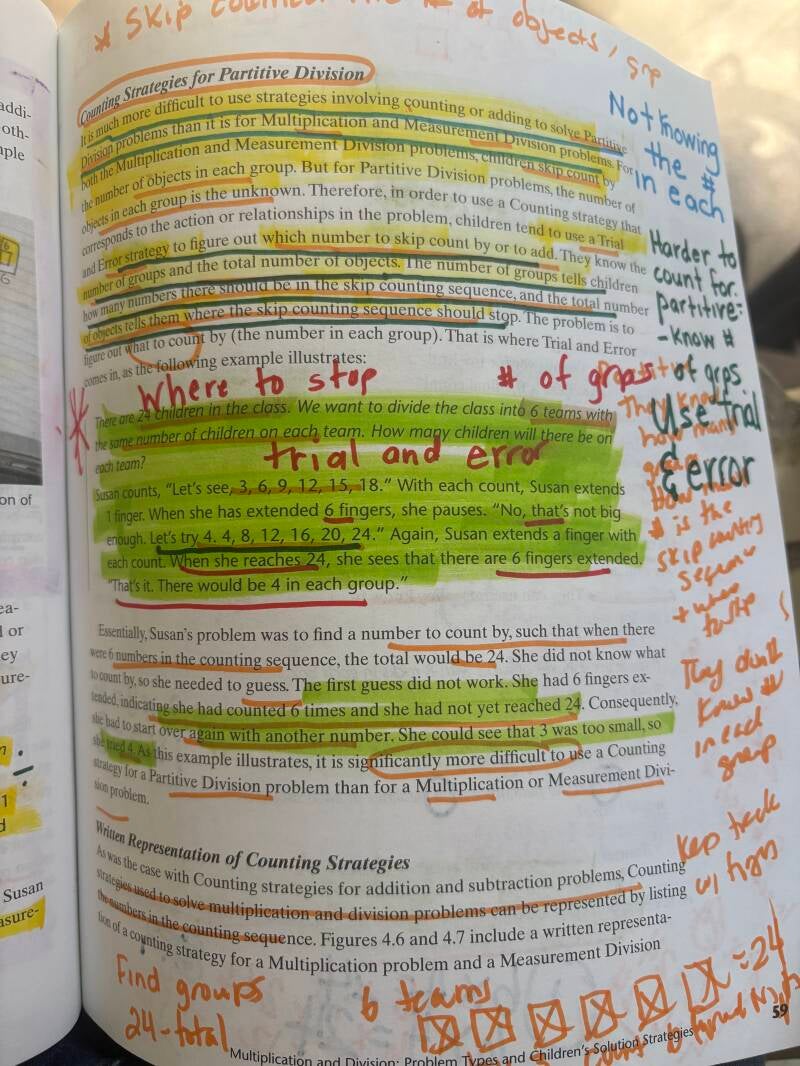 * Skip
# of objects / grp
Counting Strategies for Partitive Division
It is much more difficult to use strategies involving counting or adding to solve Partitive
Division problems than it is for Multiplication and Measurement Division problems. For
both the Multiplication and Measurement Division problems, children skip count by
the number of objects in each group. But for Partitive Division problems, the number of
objects in each group is the unknown. Therefore, in order to use a Counting strategy that
corresponds to the action or relationships in the problem, children tend to use a Trial
and Error strategy to figure out which number to skip count by or to add. They know the
number of groups and the total number of objects. The number of groups tells children
how many numbers there should be in the skip counting sequence, and the total number
of objects tells them where the skip counting sequence should stop. The problem is to
figure out what to count by (the number in each group). That is where Trial and Error
comes in, as the following example illustrates:
Where to stop
# of grps
There are 24 children in the class. We want to divide the class into 6 teams with
the same number of children on each team. How many children will there be on
each team?
trial and error
Susan counts, “Let’s see, 3, 6, 9, 12, 15, 18.” With each count, Susan extends
1 finger. When she has extended 6 fingers, she pauses. “No, that’s not big
enough. Let’s try 4. 4, 8, 12, 16, 20, 24.” Again, Susan extends a finger with
each count. When she reaches 24, she sees that there are 6 fingers extended.
“That’s it. There would be 4 in each group.”
Essentially, Susan’s problem was to find a number to count by, such that when there
were 6 numbers in the counting sequence, the total would be 24. She did not know what
to count by, so she needed to guess. The first guess did not work. She had 6 fingers ex-
tended, indicating she had counted 6 times and she had not yet reached 24. Consequently,
she had to start over again with another number. She could see that 3 was too small, so
she tried 4. As this example illustrates, it is significantly more difficult to use a Counting
strategy for a Partitive Division problem than for a Multiplication or Measurement Divi-
sion problem.
Written Representation of Counting Strategies
As was the case with Counting strategies for addition and subtraction problems, Counting
strategies used to solve multiplication and division problems can be represented by listing
the numbers in the counting sequence. Figures 4.6 and 4.7 include a written representa-
tion of a counting strategy for a Multiplication problem and a Measurement Division
Not knowing
the #
in each
Harder to
count for
partitive:
- know #
of grps
Use trial
& error
how many
# is the
skip counting
sequence
They don't
know #
in each
group
Find groups
24-total
6 teams
=24
59
Multiplication and Division: Problem Types and Children’s Solution Strategies
addi-
oth-
on of
ea-
l or
ey
ure-
÷
1
d
Susan
asure-